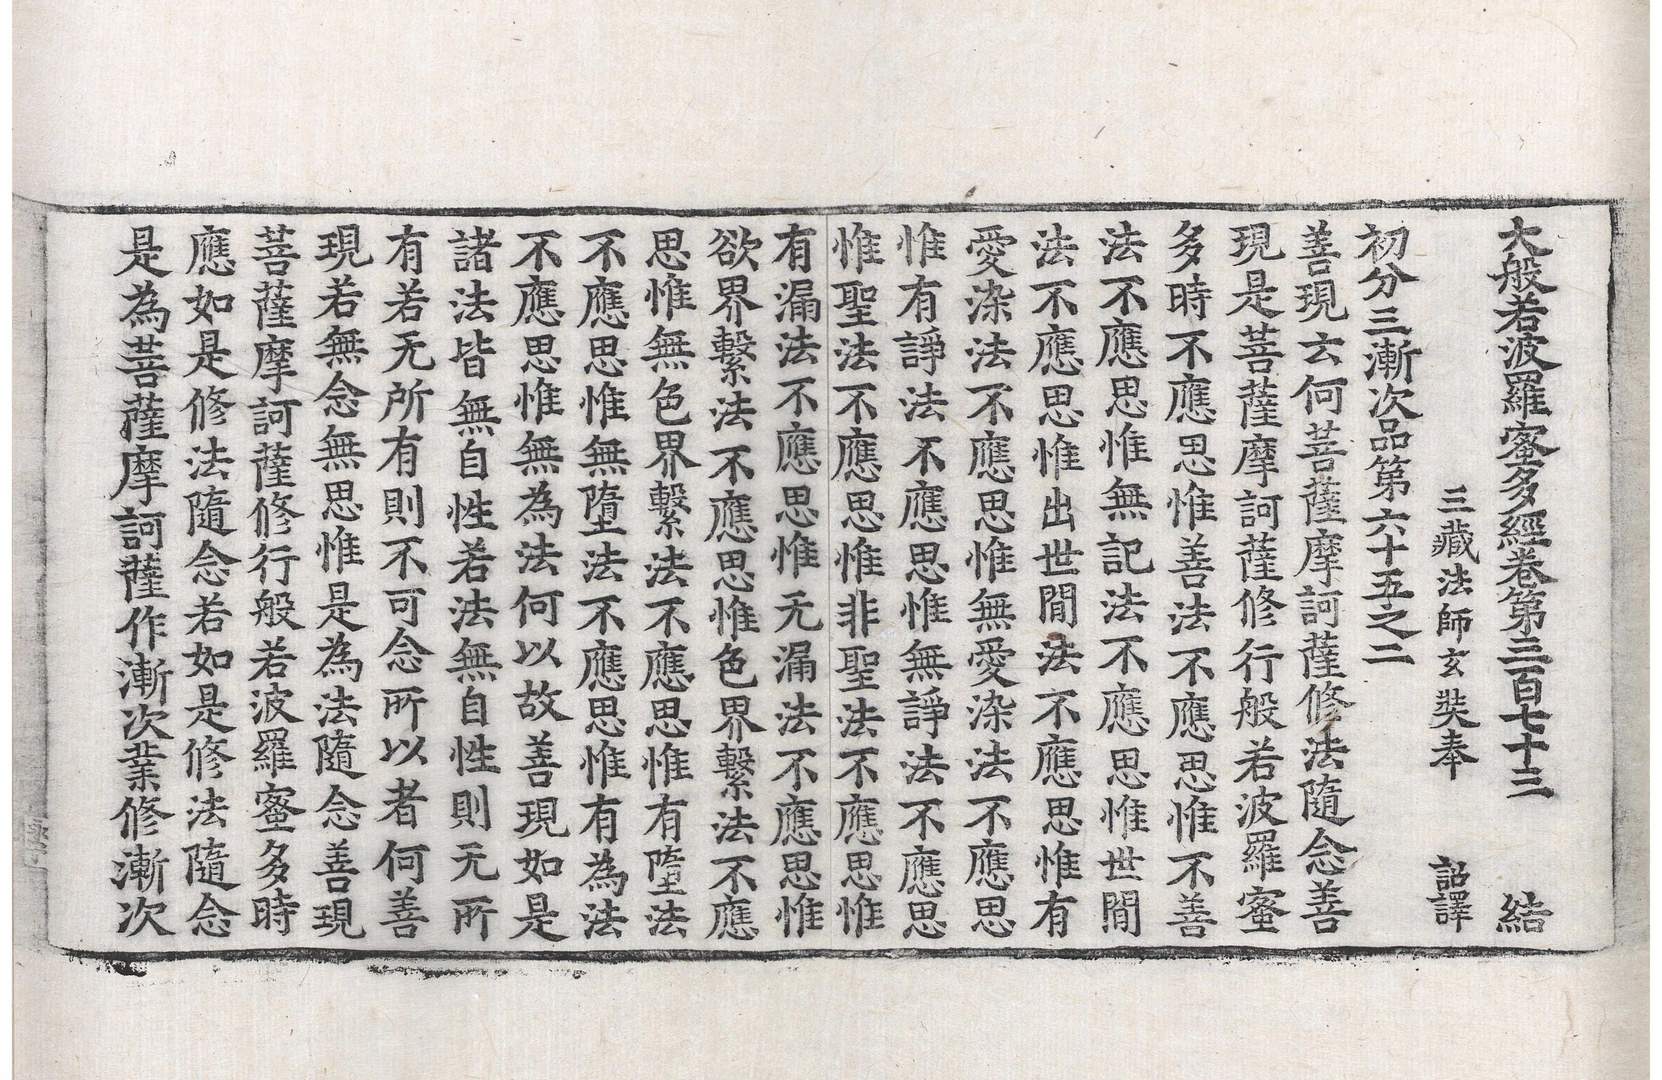 大般若波羅蜜多經卷第三百七十三 結
三藏法師玄奘奉 詔譯
初分三漸次品第六十五之二
善現云何菩薩摩訶薩修法隨念善
現是菩薩摩訶薩修行般若波羅蜜
多時不應思惟善法不應思惟不善
法不應思惟無記法不應思惟世閒
法不應思惟出世閒法不應思惟有
愛染法不應思惟無愛染法不應思
惟有諍法不應思惟無諍法不應思
惟聖法不應思惟非聖法不應思惟
有漏法不應思惟无漏法不應思惟
欲界繫法不應思惟色界繫法不應
思惟無色界繫法不應思惟有墮法
不應思惟無墮法不應思惟有為法
不應思惟無為法何以故善現如是
諸法皆無自性若法無自性則无所
有若无所有則不可念所以者何善
現若無念無思惟是為法隨念善現
菩薩摩訶薩修行般若波羅蜜多時
應如是修法隨念若如是修法隨念
是為菩薩摩訶薩作漸次業修漸次